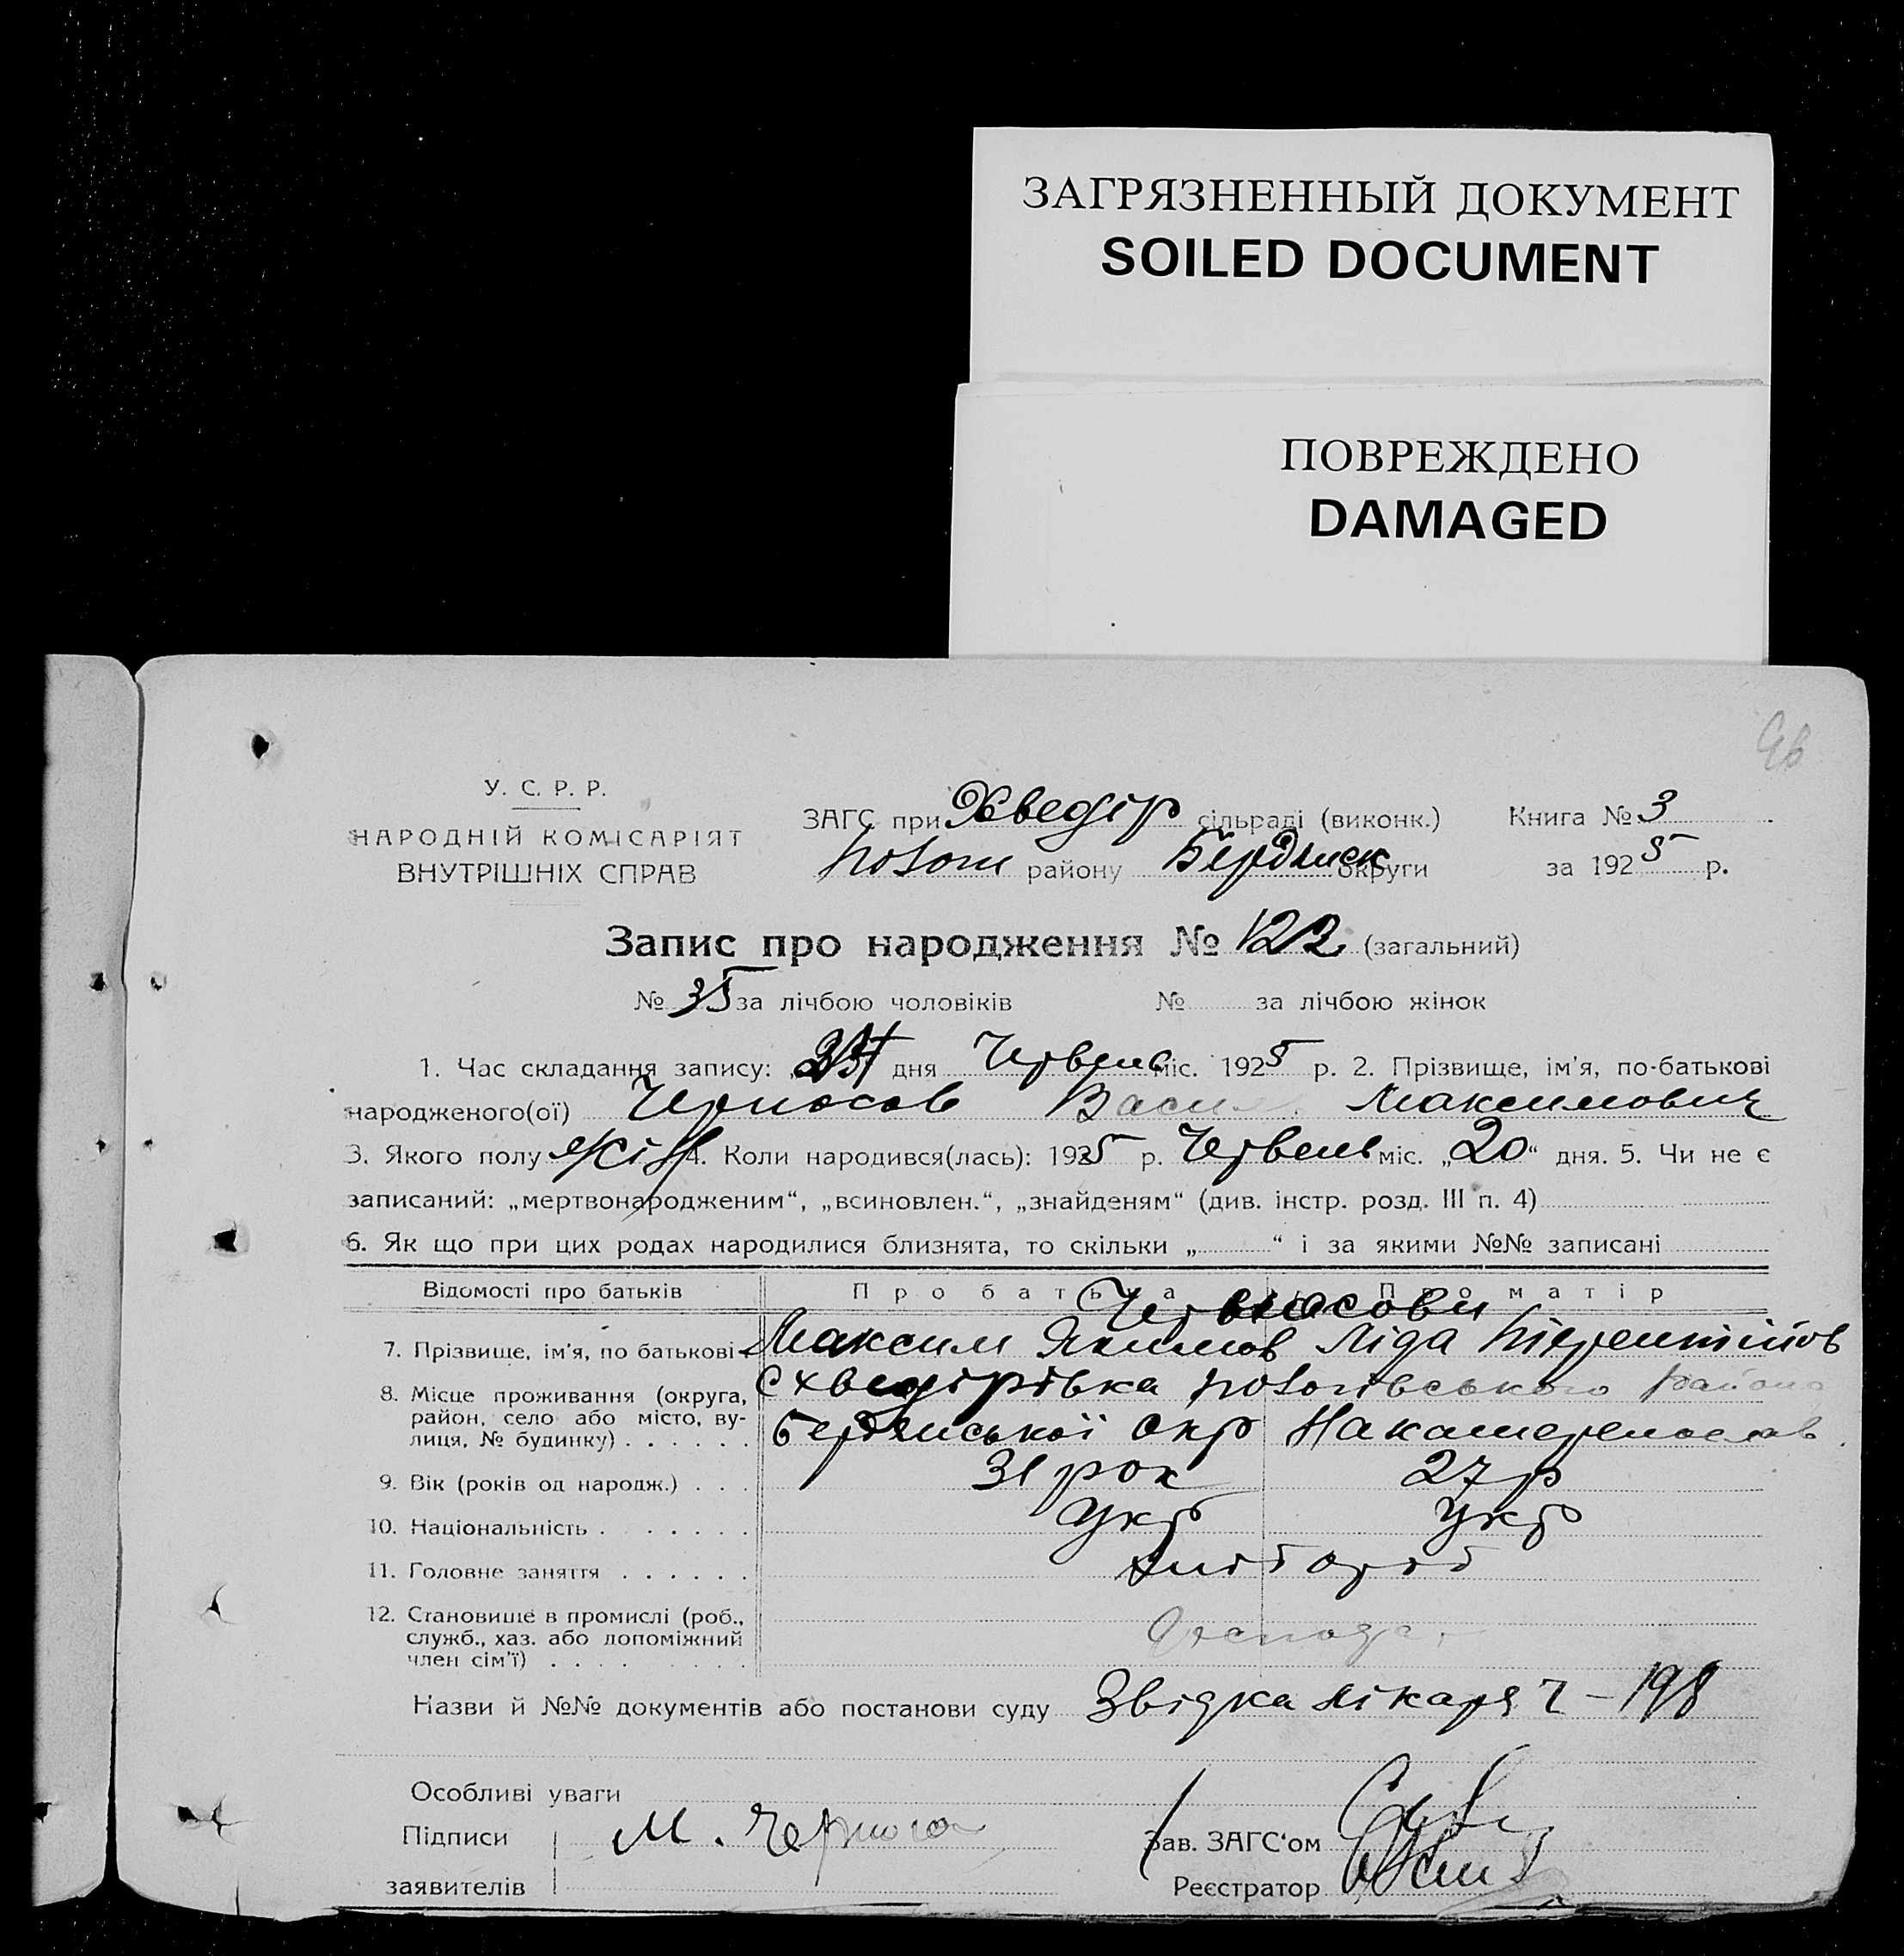 ЗАГРЯЗНЕННЫЙ ДОКУМЕНТ
SOILED DOCUMENT
ПОВРЕЖДЕНО
DAMAGED
У. С. Р. Р.
НАРОДНІЙ КОМІСАРІЯТ
ВНУТРІШНІХ СПРАВ
ЗАГС при Хведір сільраді (виконк.)
району Бердянск округи
Книга № 3
за 1925 р.
Запис про народження № 122 (загальний)
№ 35 за лічбою чоловіків № за лічбою жінок
1. Час складання запису: дня Червень міс. 1925 р. 2. Прізвище, ім'я, по-батькові
народженого(ої) Черносов Васил Максимович
3. Якого полу 4. Коли народився(лась): 1925 р. Червень міс. „20“ дня. 5. Чи не є
записаний: „мертвонародженим“, „всиновлен.“, „знайденям“ (див. інстр. розд. III п. 4)
6. Як що при цих родах народилися близнята, то скільки „ “ і за якими №№ записані
Відомості про батьків Про батька Про матір
Черносови
7. Прізвище, ім'я, по батькові Максим Якимов Ліда Терентійов
8. Місце проживання (округа, район, село або місто, вулиця, № будинку)
с Хведірівка району
Бердянської окр
9. Вік (років од народж.) 31 рок 27 р
10. Національність Укр Укр
11. Головне заняття хлібороб
12. Становище в промислі (роб., служб., хаз. або допоміжний член сім'ї)
Назви й №№ документів або постанови суду Звідка лікаря ч – 198
Особливі уваги
Підписи
заявителів
М.
Зав. ЗАГС'ом
Реєстратор